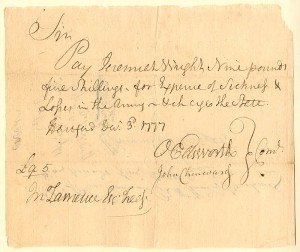 Sir
Pay Jeremiah Wright Nine pounds
five Shillings - for Expence of Sickness &
Losses in the Army - & charge the State.
Hartford Decr. 3d. 1777
O Ellsworth } Comtt.
John Chenward
£9 5
Jno Lawrence Esqr Treasr.